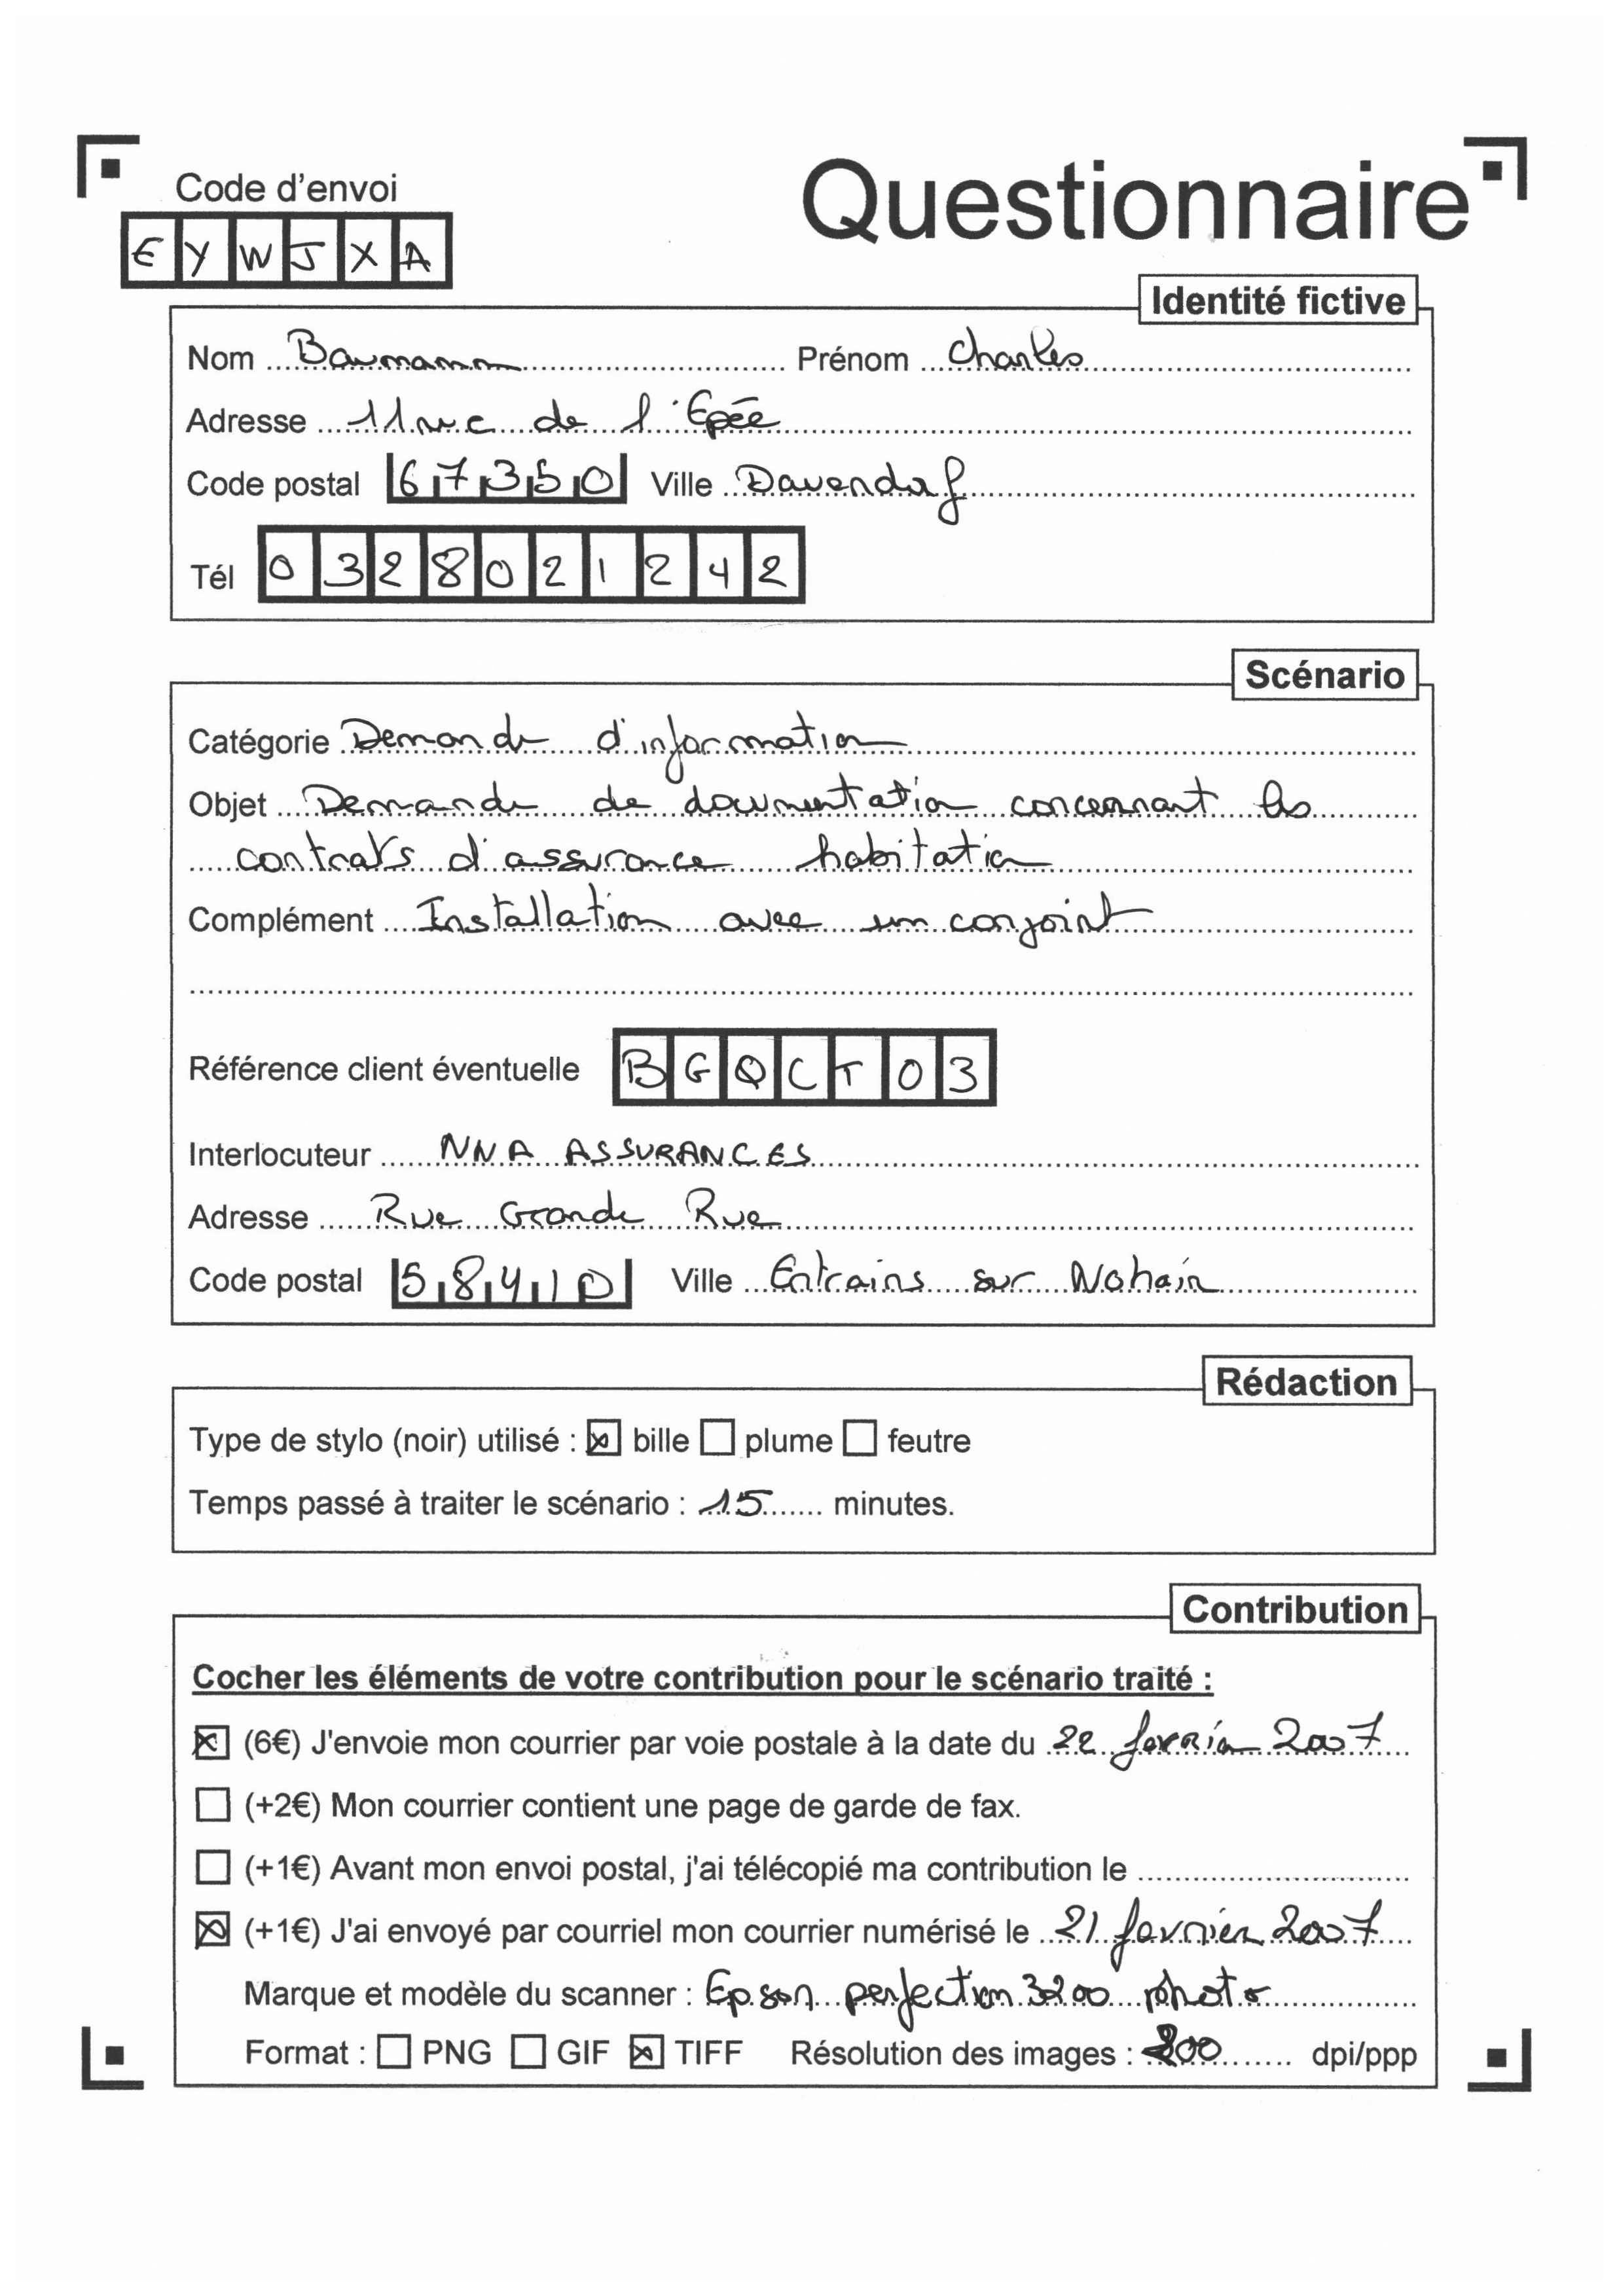 Code d'envoi
Questionnaire
E Y W J X A
Identité fictive
Nom Baumann Prénom Charles
Adresse 11 rue de l'Epée
Code postal 67350 Ville Dauendorf
Tél 0328021242
Scénario
Catégorie Demande d'information
Objet Demande de documentation concernant les
contrats d'assurance habitation
Complément Installation avec un conjoint
Référence client éventuelle BGQCT03
Interlocuteur NNA ASSURANCES
Adresse Rue Grande Rue
Code postal 58410 Ville Entrains sur Nohain
Rédaction
Type de stylo (noir) utilisé : ☒ bille ☐ plume ☐ feutre
Temps passé à traiter le scénario : 15 minutes.
Contribution
Cocher les éléments de votre contribution pour le scénario traité :
☒ (6€) J'envoie mon courrier par voie postale à la date du 22 février 2007
☐ (+2€) Mon courrier contient une page de garde de fax.
☐ (+1€) Avant mon envoi postal, j'ai télécopié ma contribution le
☒ (+1€) J'ai envoyé par courriel mon courrier numérisé le 21 fevrier 2007
Marque et modèle du scanner : Epson perfection 3200 photo
Format : ☐ PNG ☐ GIF ☒ TIFF Résolution des images : 200 dpi/ppp